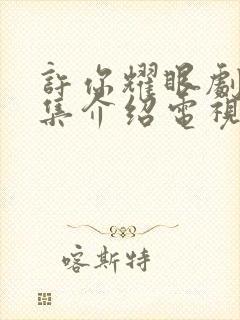 許你耀眼劇
集介绍電視
喀斯特